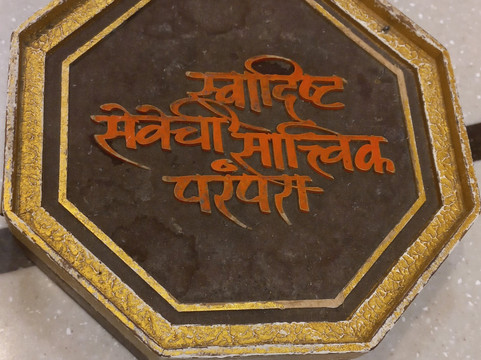 स्वादिष्ट
सेवेची सात्त्विक
परंपरा